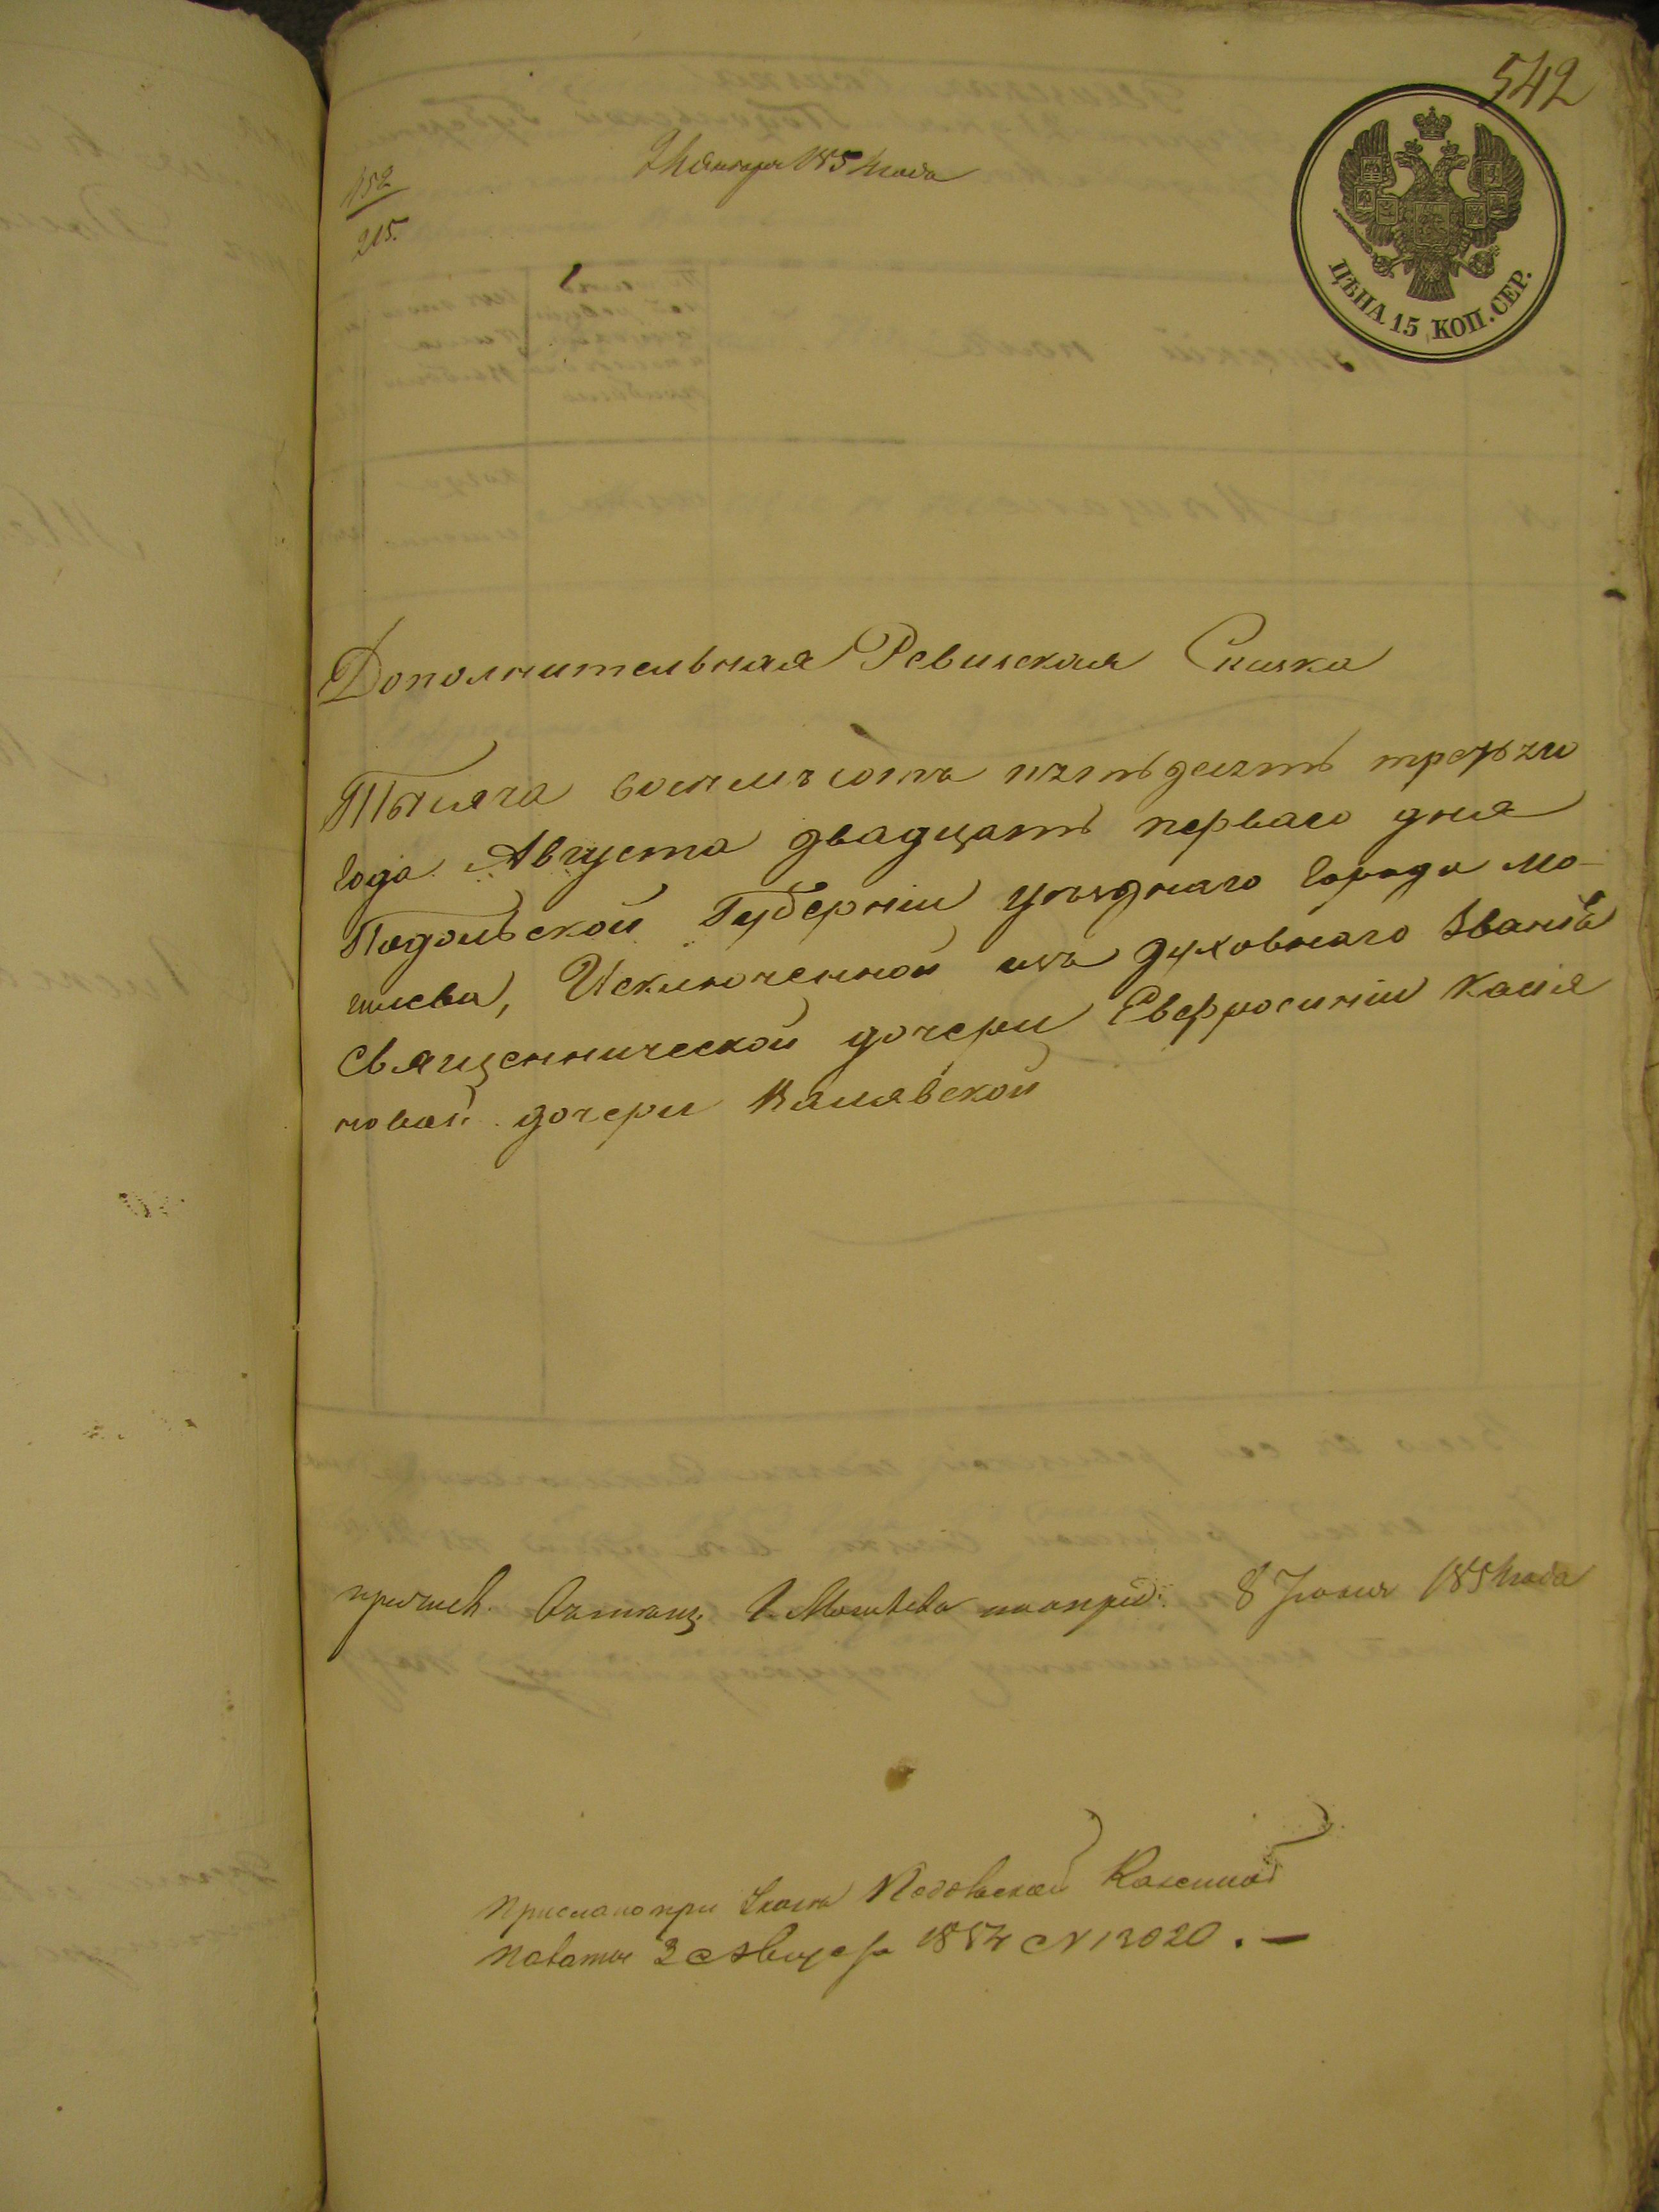 542
152
215.
Января 1854 года
ЦѢНА 15 КОП. СЕР.
Дополнительная Ревизская Сказка
Тысяча восемъ сотъ пятьдесятъ третьяго
года Августа двадцать перваго дня
Подольской Губерніи уѣзднаго города Мо-
гилева, Исключенной изъ духовнаго званія
Священнической дочери Евфросиніи Касія
новой дочери
причисл. въ мѣщ. г. Могилева 8 Іюля 1854 года
Прислано при Указѣ Подольской Казенной
Палаты 3 Августа 1854 N 13020. —